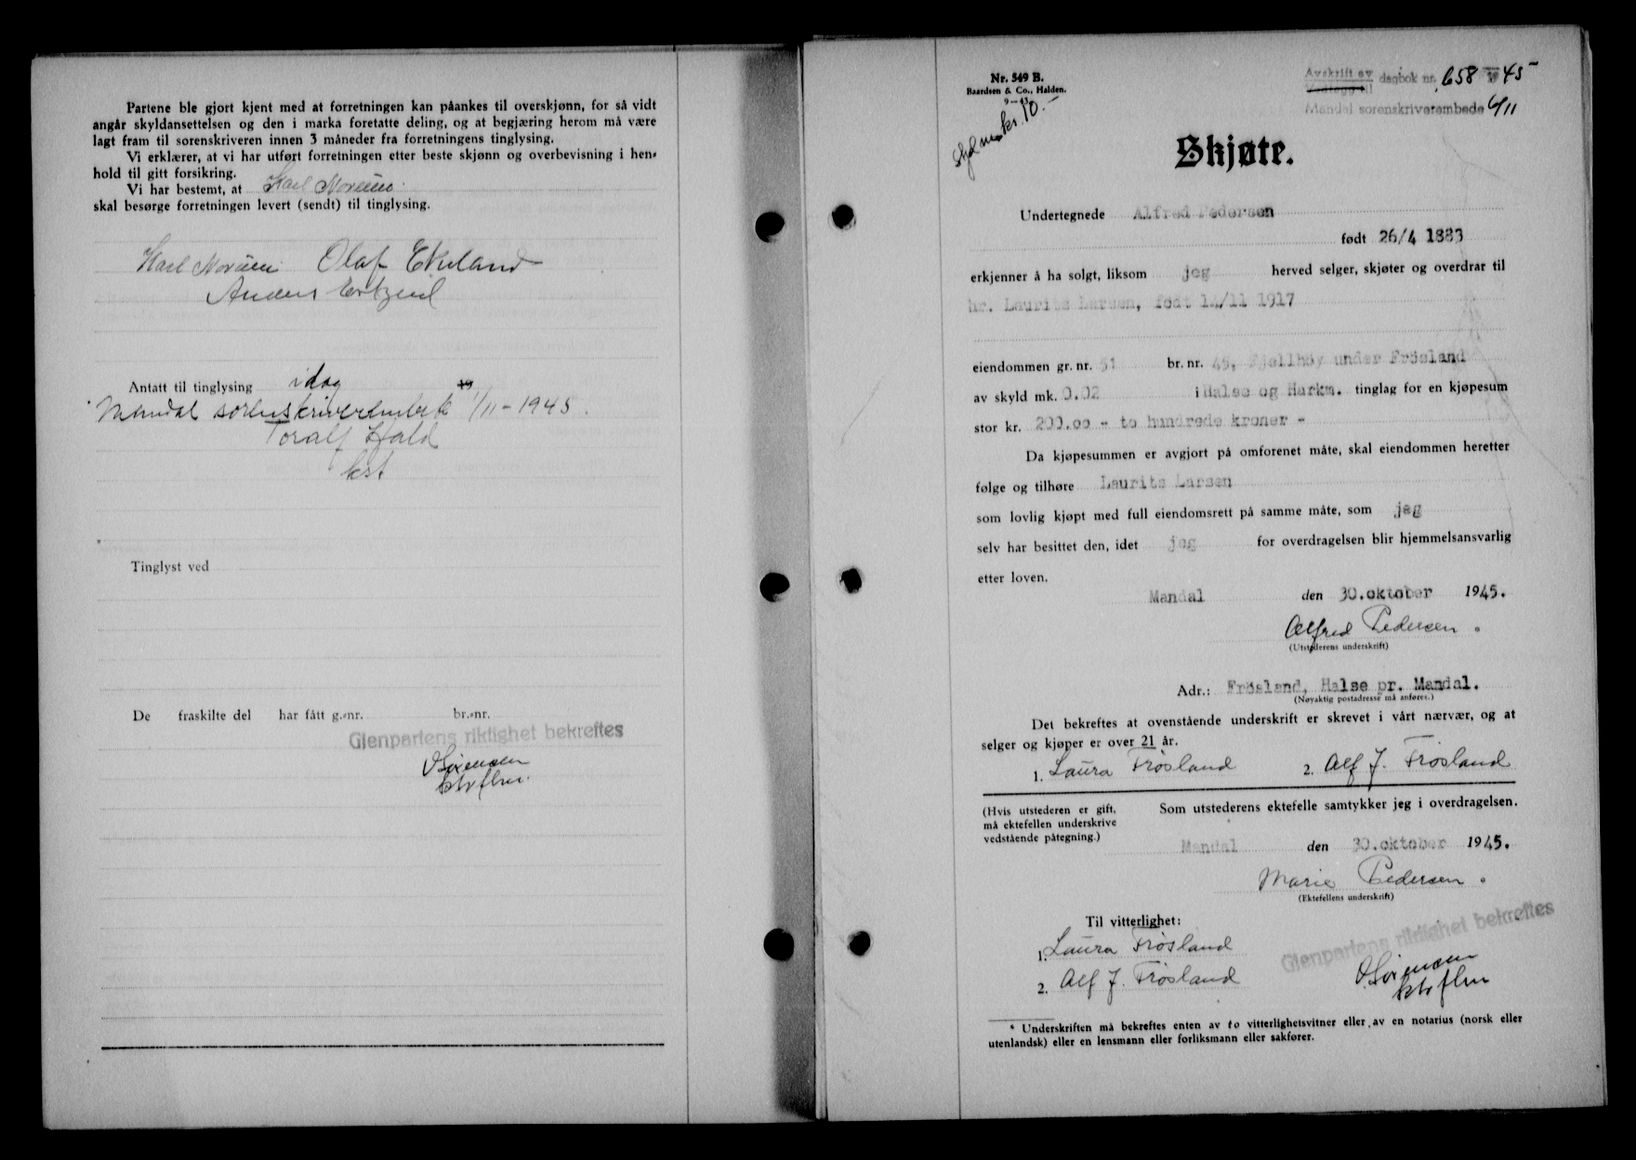 Partene ble gjort kjent med at forretningen kan påankes til overskjønn, for så vidt
angår skyldansettelsen og den i marka foretatte deling, og at begjæring herom må være
lagt fram til sorenskriveren innen 3 måneder fra forretningens tinglysing.
Vi erklærer, at vi har utført forretningen etter beste skjønn og overbevisning i hen-
hold til gitt forsikring.
Vi har bestemt, at Karl
skal besørge forretningen levert (sendt) til tinglysing.
Karl Olaf Ekeland
Anders
Antatt til tinglysing idag 19
Mandal sorenskriverembete 1/11-1945.
Toralf Hald
kst
Tinglyst ved
De fraskilte del har fått g.-nr. br.-nr.
Gjenpartens riktighet bekreftes
O Sørensen
Nr. 549 B.
Baardsen & Co., Halden.
9-43
kr. 10.-
Avskrift av dagbok nr. 658 19 45
Mandal sorenskriverembede 6/11
Skjøte.
Undertegnede Alfred Pedersen
født 26/4 1883
erkjenner å ha solgt, liksom jeg herved selger, skjøter og overdrar til
hr. Laurits Larsen, født 14/11 1917
eiendommen gr. nr. 51 br. nr. 45, Fjellhøy under Frösland
av skyld mk. 0.02 i Halse og Harkm. tinglag for en kjøpesum
stor kr. 200.00 - to hundrede kroner -
Da kjøpesummen er avgjort på omforenet måte, skal eiendommen heretter
følge og tilhøre Laurits Larsen
som lovlig kjøpt med full eiendomsrett på samme måte, som jeg
selv har besittet den, idet jeg for overdragelsen blir hjemmelsansvarlig
etter loven.
Mandal den 30.oktober 1945.
Alfred Pedersen.
(Utstederens underskrift)
Adr.: Frösland, Halse pr. Mandal.
(Nøyaktig postadresse må anføres.)
Det bekreftes at ovenstående underskrift er skrevet i vårt nærvær, og at
selger og kjøper er over 21 år.
1. Laura Frøsland 2. Alf J. Frøsland
(Hvis utstederen er gift, Som utstederens ektefelle samtykker jeg i overdragelsen.
må ektefellen underskrive
vedstående påtegning.)
Mandal den 30.oktober 1945.
Marie Pedersen.
(Ektefellens underskrift)
Til vitterlighet:
1. Laura Frøsland
Gjenpartens riktighet bekreftes
2. Alf J. Frøsland
O. Sørensen
* Underskriften må bekreftes enten av to vitterlighetsvitner eller av en notarius (norsk eller
utenlandsk) eller en lensmann eller forliksmann eller sakfører.